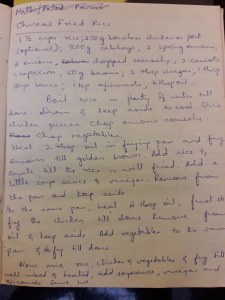 Chinese Fried Rice
1 ½ cups rice, 250g boneless chicken or pork
(optional), 200g cabbage, 2 spring onions,
2 onions, chopped coarsely, 2 carrots
capsicum, 50g beans, 2 tbsp vinegar, 1 tbsp
soya sauce, 1 tsp ajinomoto, 6 tbsp oil.
Boil rice in plenty of water till
done. Drain & keep aside to cool. Slice
chicken pieces. Chop onions coarsely.
Chop vegetables.
Heat 2 tbsp oil in frying pan and fry
onions till golden brown. Add rice &
sauté till the rice is well fried. Add a
little soya sauce & vinegar. Remove from
the pan and keep aside.
In the same pan, heat 2 tbsp oil. first stir
fry the chicken till done. Remove from
oil & keep aside. Add vegetables to the same
pan & fry till done.
Now mix rice, chicken & vegetables & fry till
well mixed & heated, add soya sauce, vinegar and
ajinomoto. Serve hot.